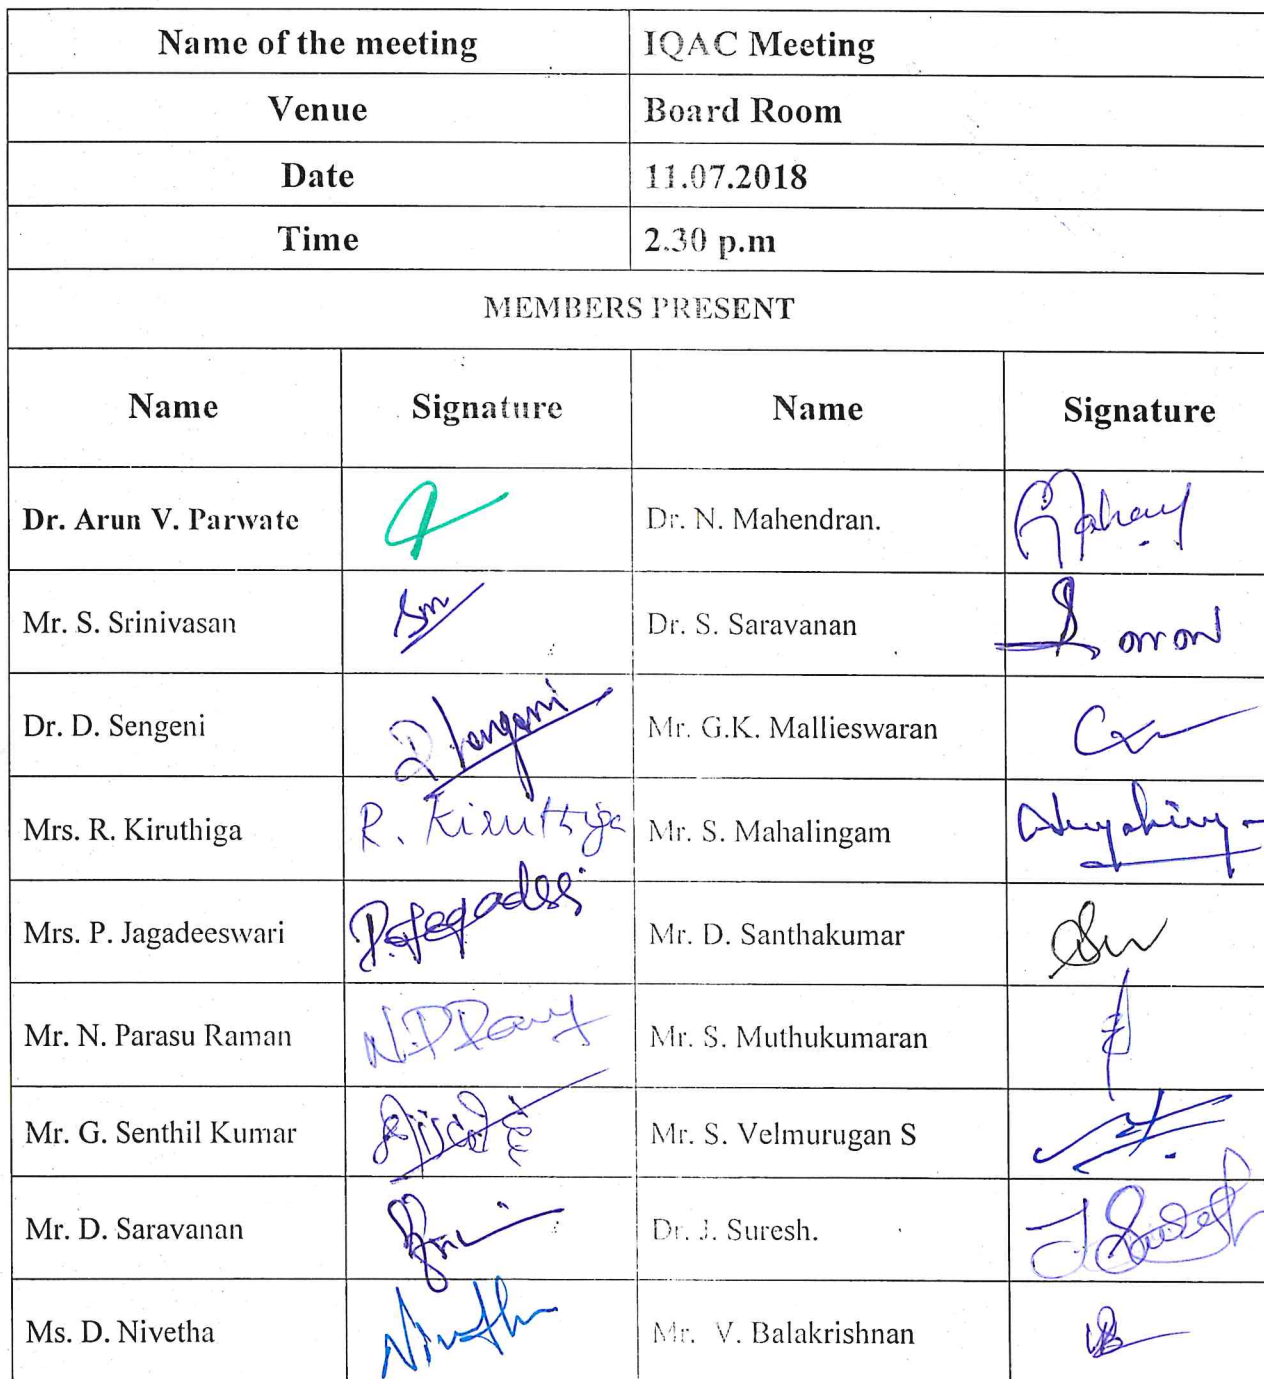 Name of the meeting IQAC Meeting
Venue Board Room
Date 11.07.2018
Time 2.30 p.m
MEMBERS PRESENT
Name Signature Name Signature
Dr. Arun V. Parwate Dr. N. Mahendran.
Mr. S. Srinivasan Dr. S. Saravanan
Dr. D. Sengeni D. Sengeni Mr. G.K. Mallieswaran
Mrs. R. Kiruthiga R. Kiruthiga Mr. S. Mahalingam
Mrs. P. Jagadeeswari P. Jagadees Mr. D. Santhakumar
Mr. N. Parasu Raman Mr. S. Muthukumaran
Mr. G. Senthil Kumar Mr. S. Velmurugan S
Mr. D. Saravanan Dr. J. Suresh. J Suresh
Ms. D. Nivetha Nivetha Mr. V. Balakrishnan